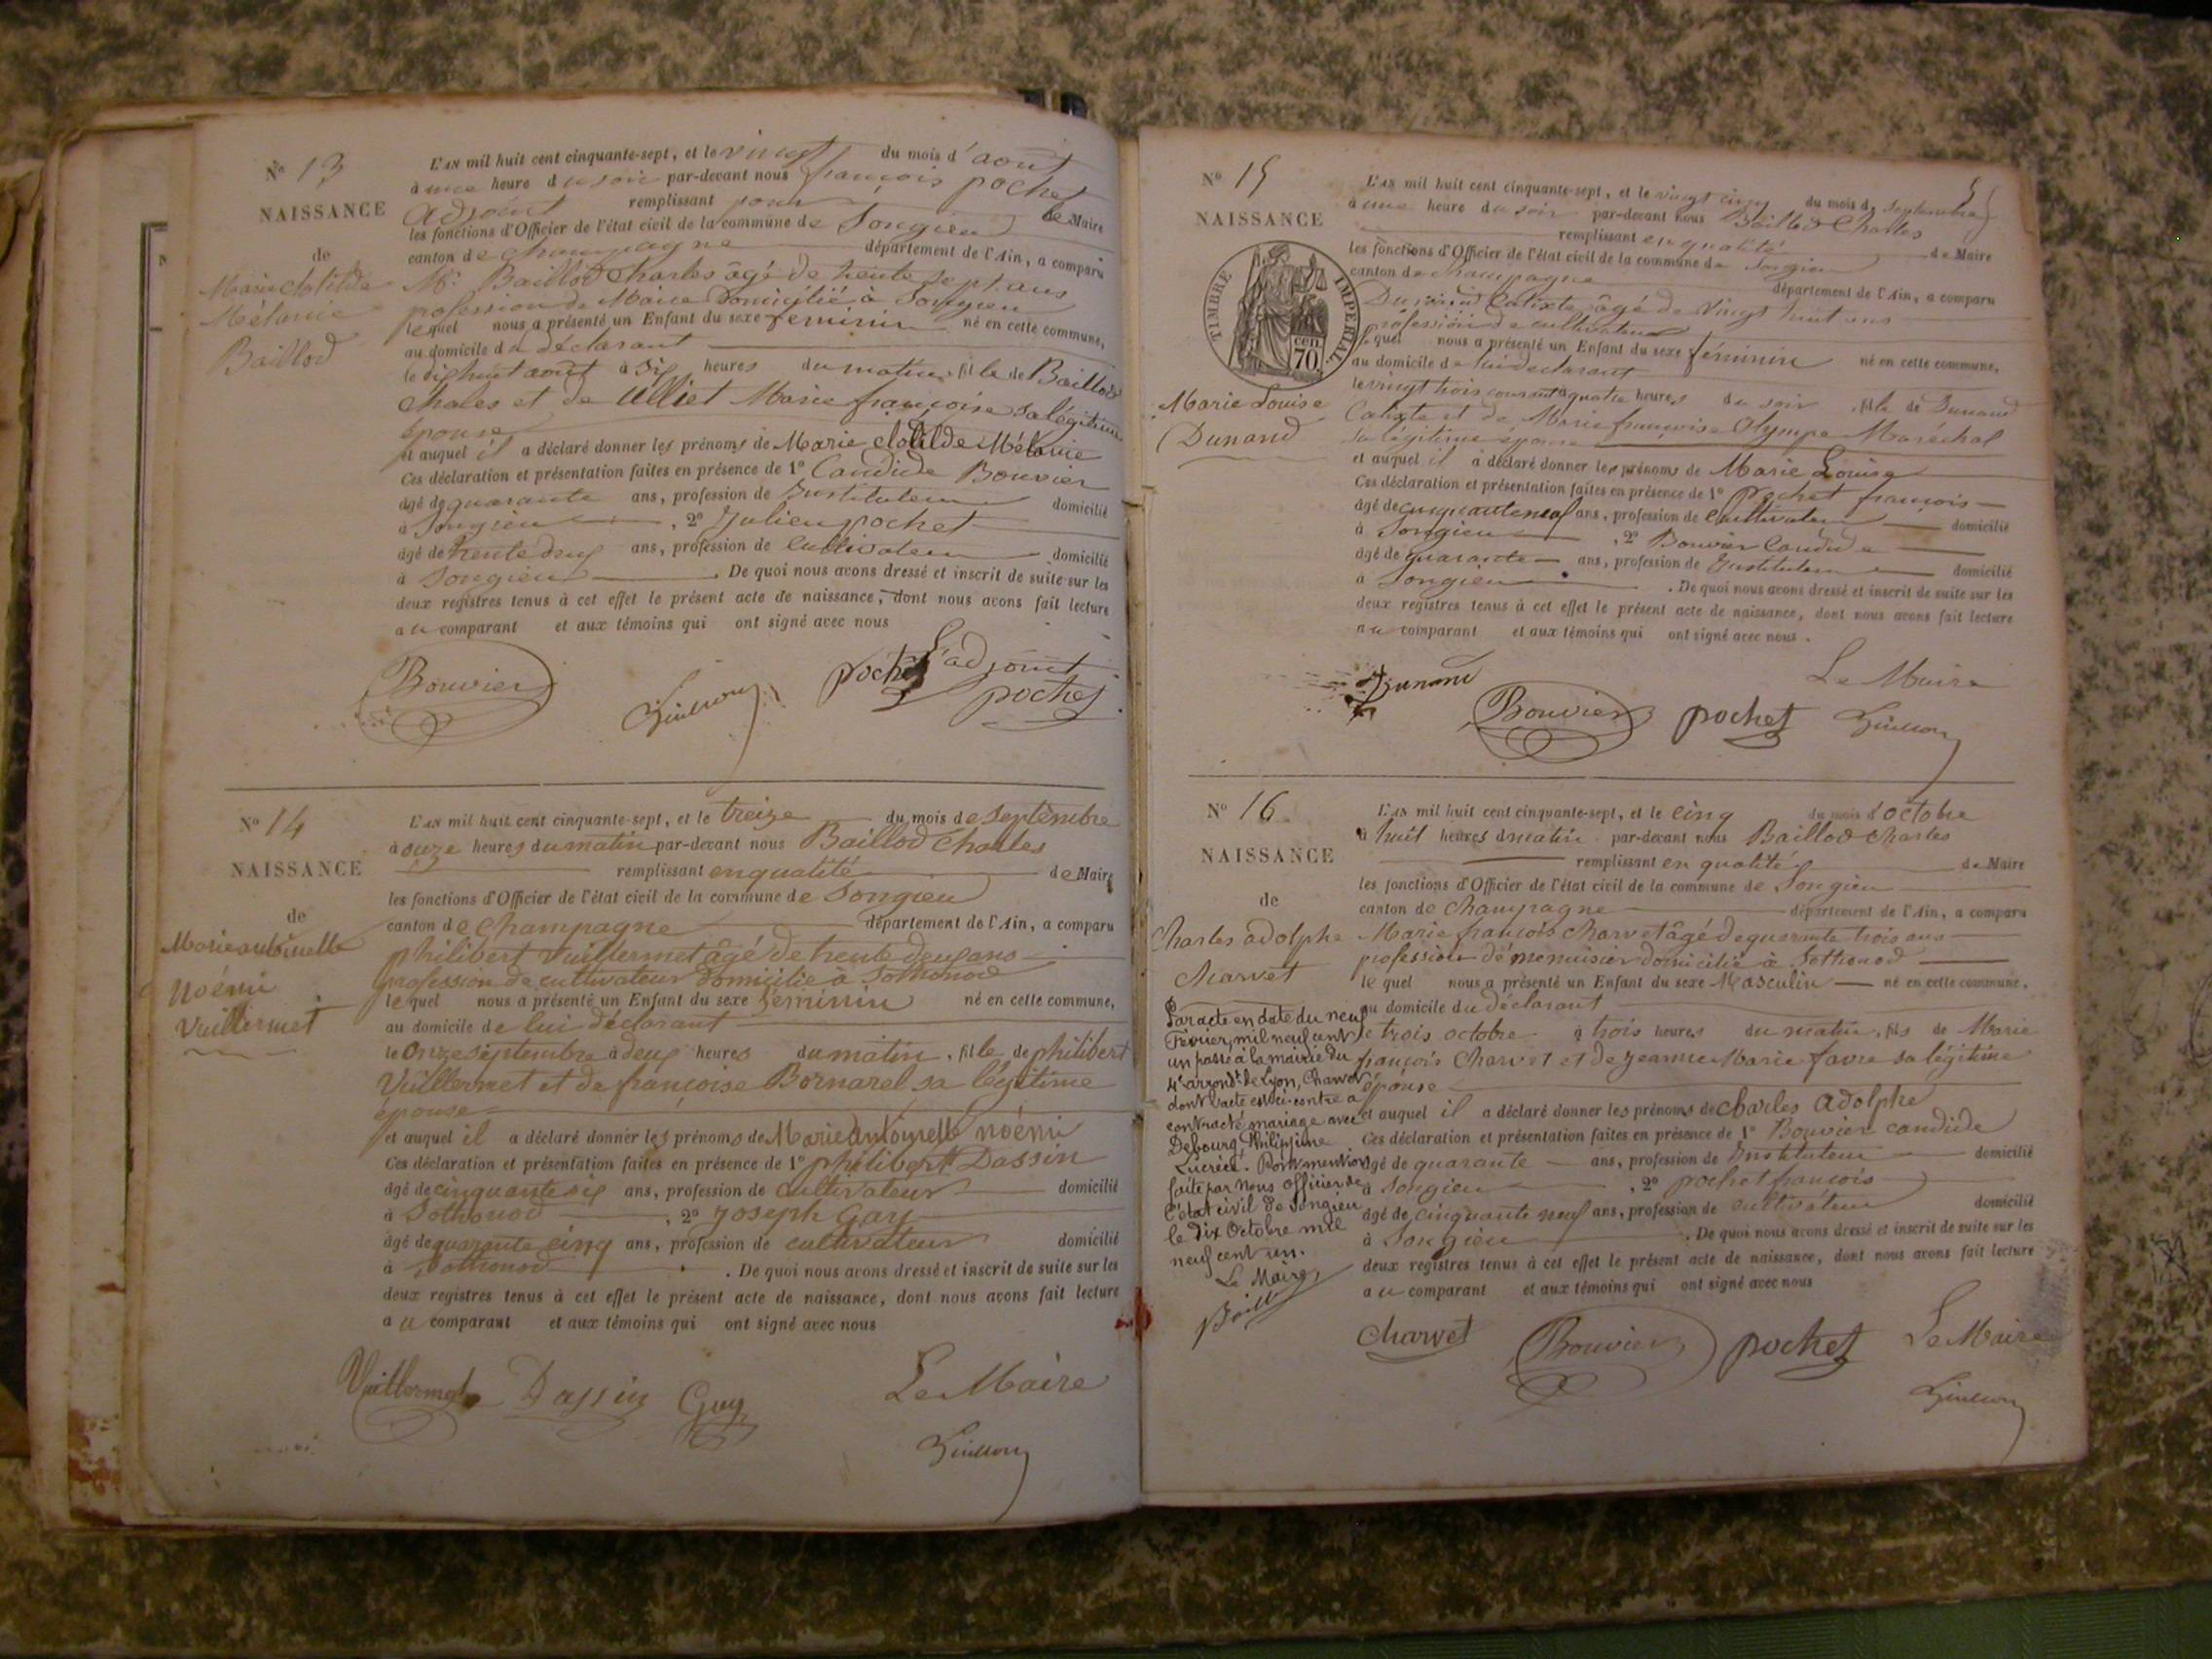 Nº 13
NAISSANCE
de
Marie Clotilde
Mélanie
Baillod
L'AN mil huit cent cinquante-sept, et le vingt du mois d'août
à une heure du soir par-devant nous françois pochet
adjoint remplissant pour le Maire
les fonctions d'Officier de l'état civil de la commune de Songieu
canton de champagne département de l'Ain, a comparu
Mr. Baillod Charles âgé de trente sept ans
profession de Maire domicilié à Songieu
lequel nous a présenté un Enfant du sexe feminin né en cette commune,
au domicile du déclarant
le dix huit août à six heures du matin, fille de Baillod
Charles et de Ulliet Marie françoise sa légitime
épouse
et auquel il a déclaré donner les prénoms de Marie clotilde Mélanie
Ces déclaration et présentation faites en présence de 1º Candide Bouvier
âgé de quarante ans, profession de Instituteur domicilié
à Songieu, 2º Julien pochet
âgé de trente deux ans, profession de cultivateur domicilié
à Songieu. De quoi nous avons dressé et inscrit de suite sur les
deux registres tenus à cet effet le présent acte de naissance, dont nous avons fait lecture
au comparant et aux témoins qui ont signé avec nous
Bouvier pochet L'adjoint
pochet
Nº 14
NAISSANCE
de
Marie antoinette
Noémi
Vuillermet
L'AN mil huit cent cinquante-sept, et le treize du mois de septembre
à onze heures du matin par-devant nous Baillod Charles
remplissant en qualité de Maire
les fonctions d'Officier de l'état civil de la commune de Songieu
canton de Champagne département de l'Ain, a comparu
philibert Vuillermet âgé de trente deux ans
profession de cultivateur domicilié à Sothonod
lequel nous a présenté un Enfant du sexe feminin né en cette commune,
au domicile de lui déclarant
le onze septembre à deux heures du matin, fille de philibert
Vuillermet et de françoise Bornarel sa légitime
épouse
et auquel il a déclaré donner les prénoms de Marie antoinette noémi
Ces déclaration et présentation faites en présence de 1º philibert Dassin
âgé de cinquante six ans, profession de cultivateur domicilié
à Sothonod, 2º Joseph Guy
âgé de quarante cinq ans, profession de cultivateur domicilié
à Sothonod. De quoi nous avons dressé et inscrit de suite sur les
deux registres tenus à cet effet le présent acte de naissance, dont nous avons fait lecture
au comparant et aux témoins qui ont signé avec nous
Vuillermet Dassin Guy Le Maire
Nº 15
NAISSANCE
TIMBRE IMPERIAL
cen
70
Marie Louise
Dunand
L'AN mil huit cent cinquante-sept, et le vingt cinq du mois de Septembre
à une heure du soir par-devant nous Baillod Charles
remplissant en qualité de Maire
les fonctions d'Officier de l'état civil de la commune de Songieu
canton de champagne département de l'Ain, a comparu
Dunand Calixte âgé de vingt huit ans
profession de cultivateur
lequel nous a présenté un Enfant du sexe féminin né en cette commune,
au domicile de lui déclarant
le vingt trois courant à quatre heures du soir, fille de Dunand
Calixte et de Marie françoise Olympe Maréchal
sa légitime épouse
et auquel il a déclaré donner les prénoms de Marie Louise
Ces déclaration et présentation faites en présence de 1º Pochet françois
âgé de cinquante neuf ans, profession de Cultivateur domicilié
à Songieu, 2º Bouvier Candide
âgé de quarante ans, profession de Instituteur domicilié
à Songieu. De quoi nous avons dressé et inscrit de suite sur les
deux registres tenus à cet effet le présent acte de naissance, dont nous avons fait lecture
au comparant et aux témoins qui ont signé avec nous.
Dunand Le Maire
Bouvier pochet
Nº 16
NAISSANCE
de
Charles adolphe
Charvet
Par acte en date du neuf
Février, mil neuf cent
un passé à la mairie du
4e arrondt de Lyon, Charvet
dont l'acte est ci-contre a
contracté mariage avec
Debourg, Philippine
Lucrèce. Pour mention
faite par Nous officier de
l'état civil de Songieu
le dix Octobre mil
neuf cent un.
Le Maire,
L'AN mil huit cent cinquante-sept, et le cinq du mois d'octobre
à huit heures du matin par-devant nous Baillod Charles
remplissant en qualité de Maire
les fonctions d'Officier de l'état civil de la commune de Songieu
canton de Champagne département de l'Ain, a comparu
Marie françois Charvet âgé de quarante trois ans
profession de menuisier domicilié à Sothonod
lequel nous a présenté un Enfant du sexe Masculin né en cette commune,
au domicile du déclarant
le trois octobre à trois heures du matin, fils de Marie
françois Charvet et de Jeanne Marie favre sa légitime
épouse
et auquel il a déclaré donner les prénoms de Charles Adolphe
Ces déclaration et présentation faites en présence de 1º Bouvier candide
âgé de quarante ans, profession de Instituteur domicilié
à Songieu, 2º pochet francois
âgé de cinquante neuf ans, profession de cultivateur domicilié
à Songieu. De quoi nous avons dressé et inscrit de suite sur les
deux registres tenus à cet effet le présent acte de naissance, dont nous avons fait lecture
au comparant et aux témoins qui ont signé avec nous
Charvet Bouvier pochet Le Maire